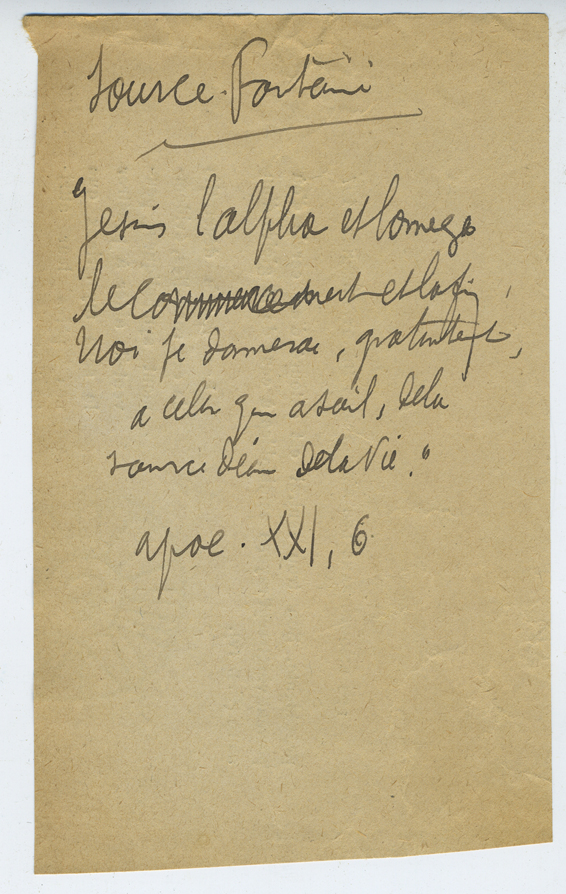 Source. Fontaine
"Je suis l'alpha et l'omega
le commencement et la fin,
Moi je donnerai, gratuitement,
a celui qui a soif, de la
source d'eau de la Vie."
apoc. XXI, 6